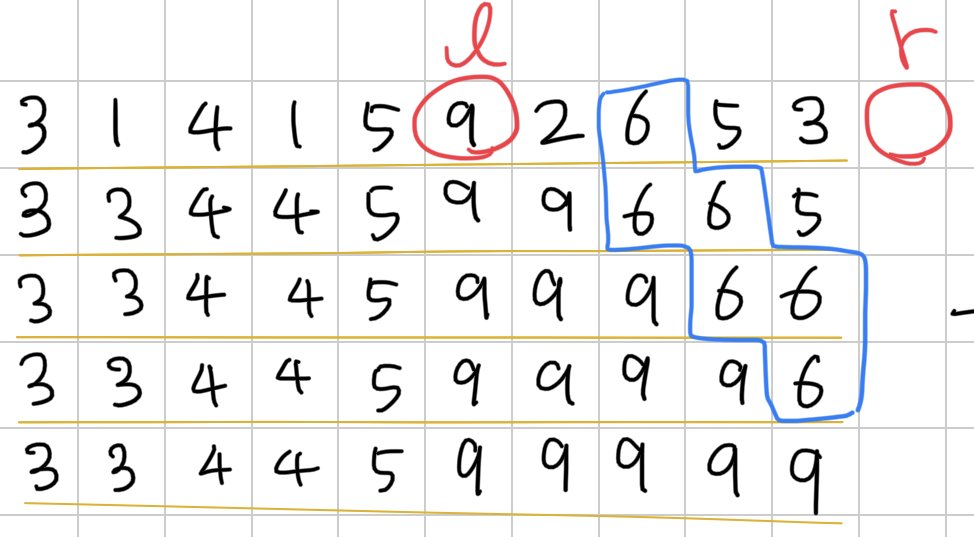 l r
3 1 4 1 5 9 2 6 5 3
3 3 4 4 5 9 9 6 6 5
3 3 4 4 5 9 9 9 6 6
3 3 4 4 5 9 9 9 9 6
3 3 4 4 5 9 9 9 9 9